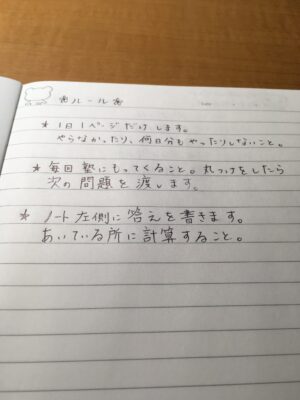 ❀ルール❀
★ 1日1ページだけします。
やらなかったり、何日分もやったりしないこと。
★毎回塾にもってくること。丸つけをしたら
次の問題を渡します。
★ ノート左側に答えを書きます。
あいている所に計算すること。